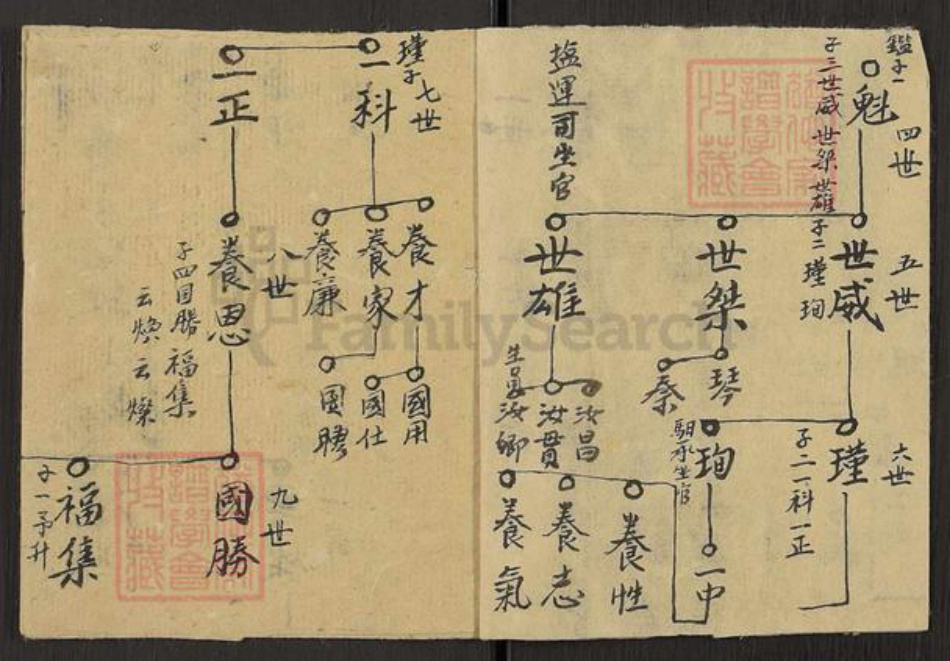 鑑子一
魁
四世
子三世威世桀世雄
五世
世威
子二瑾珣
世桀
世雄
塩運司生官
六世
瑾
子二一科一正
珣
一中
琴
秦
汝昌
汝貫
汝卿
養性
養志
養氣
瑾子七世
一科
一正
八世
養才
養家
養廉
養思
子四國勝福集
云煥云燦
國用
國仕
國聘
九世
國勝
福集
子一予升
FamilySearch